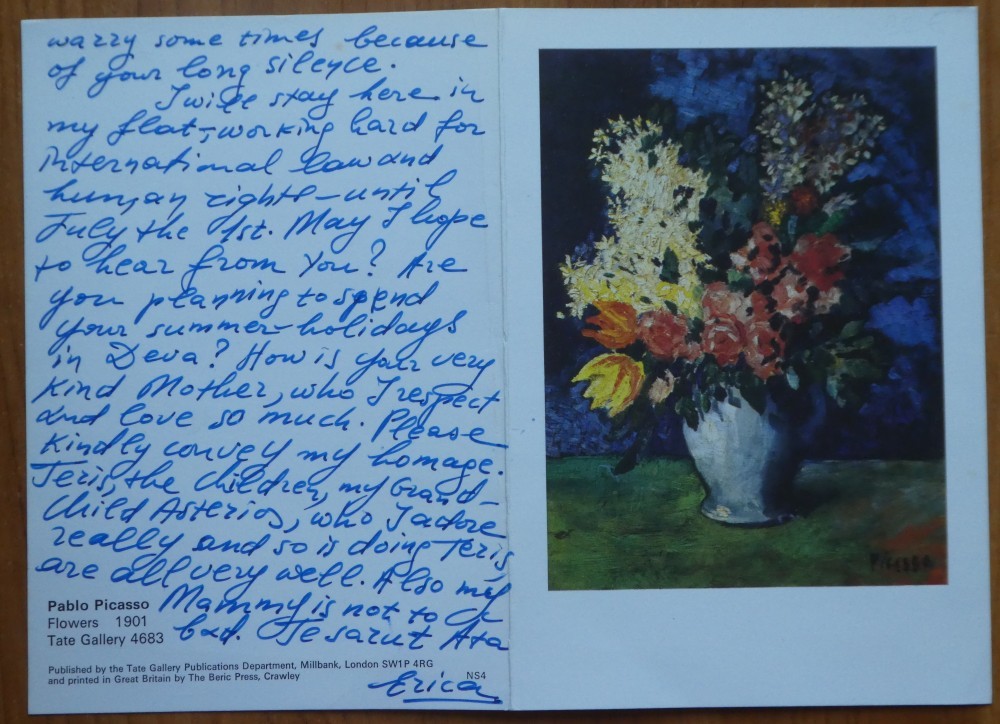 warry some times because
of your long silence.
I will stay here in
my flat, working hard for
international law and
human rights - until
July the 1st. May I hope
to hear from you? Are
you planning to spend
your summer-holidays
in Deva? How is your very
kind Mother, who I respect
and love so much. Please
kindly convey my homage.
Teris, the children, my Grand-
Child Asterios, who I adore
really and so is doing Teris
are all very well. Also my
Mammy is not to
bad. Te sarut Ata
Erica
Pablo Picasso
Flowers 1901
Tate Gallery 4683
Published by the Tate Gallery Publications Department, Millbank, London SW1P 4RG
and printed in Great Britain by The Beric Press, Crawley
NS4
Picasso